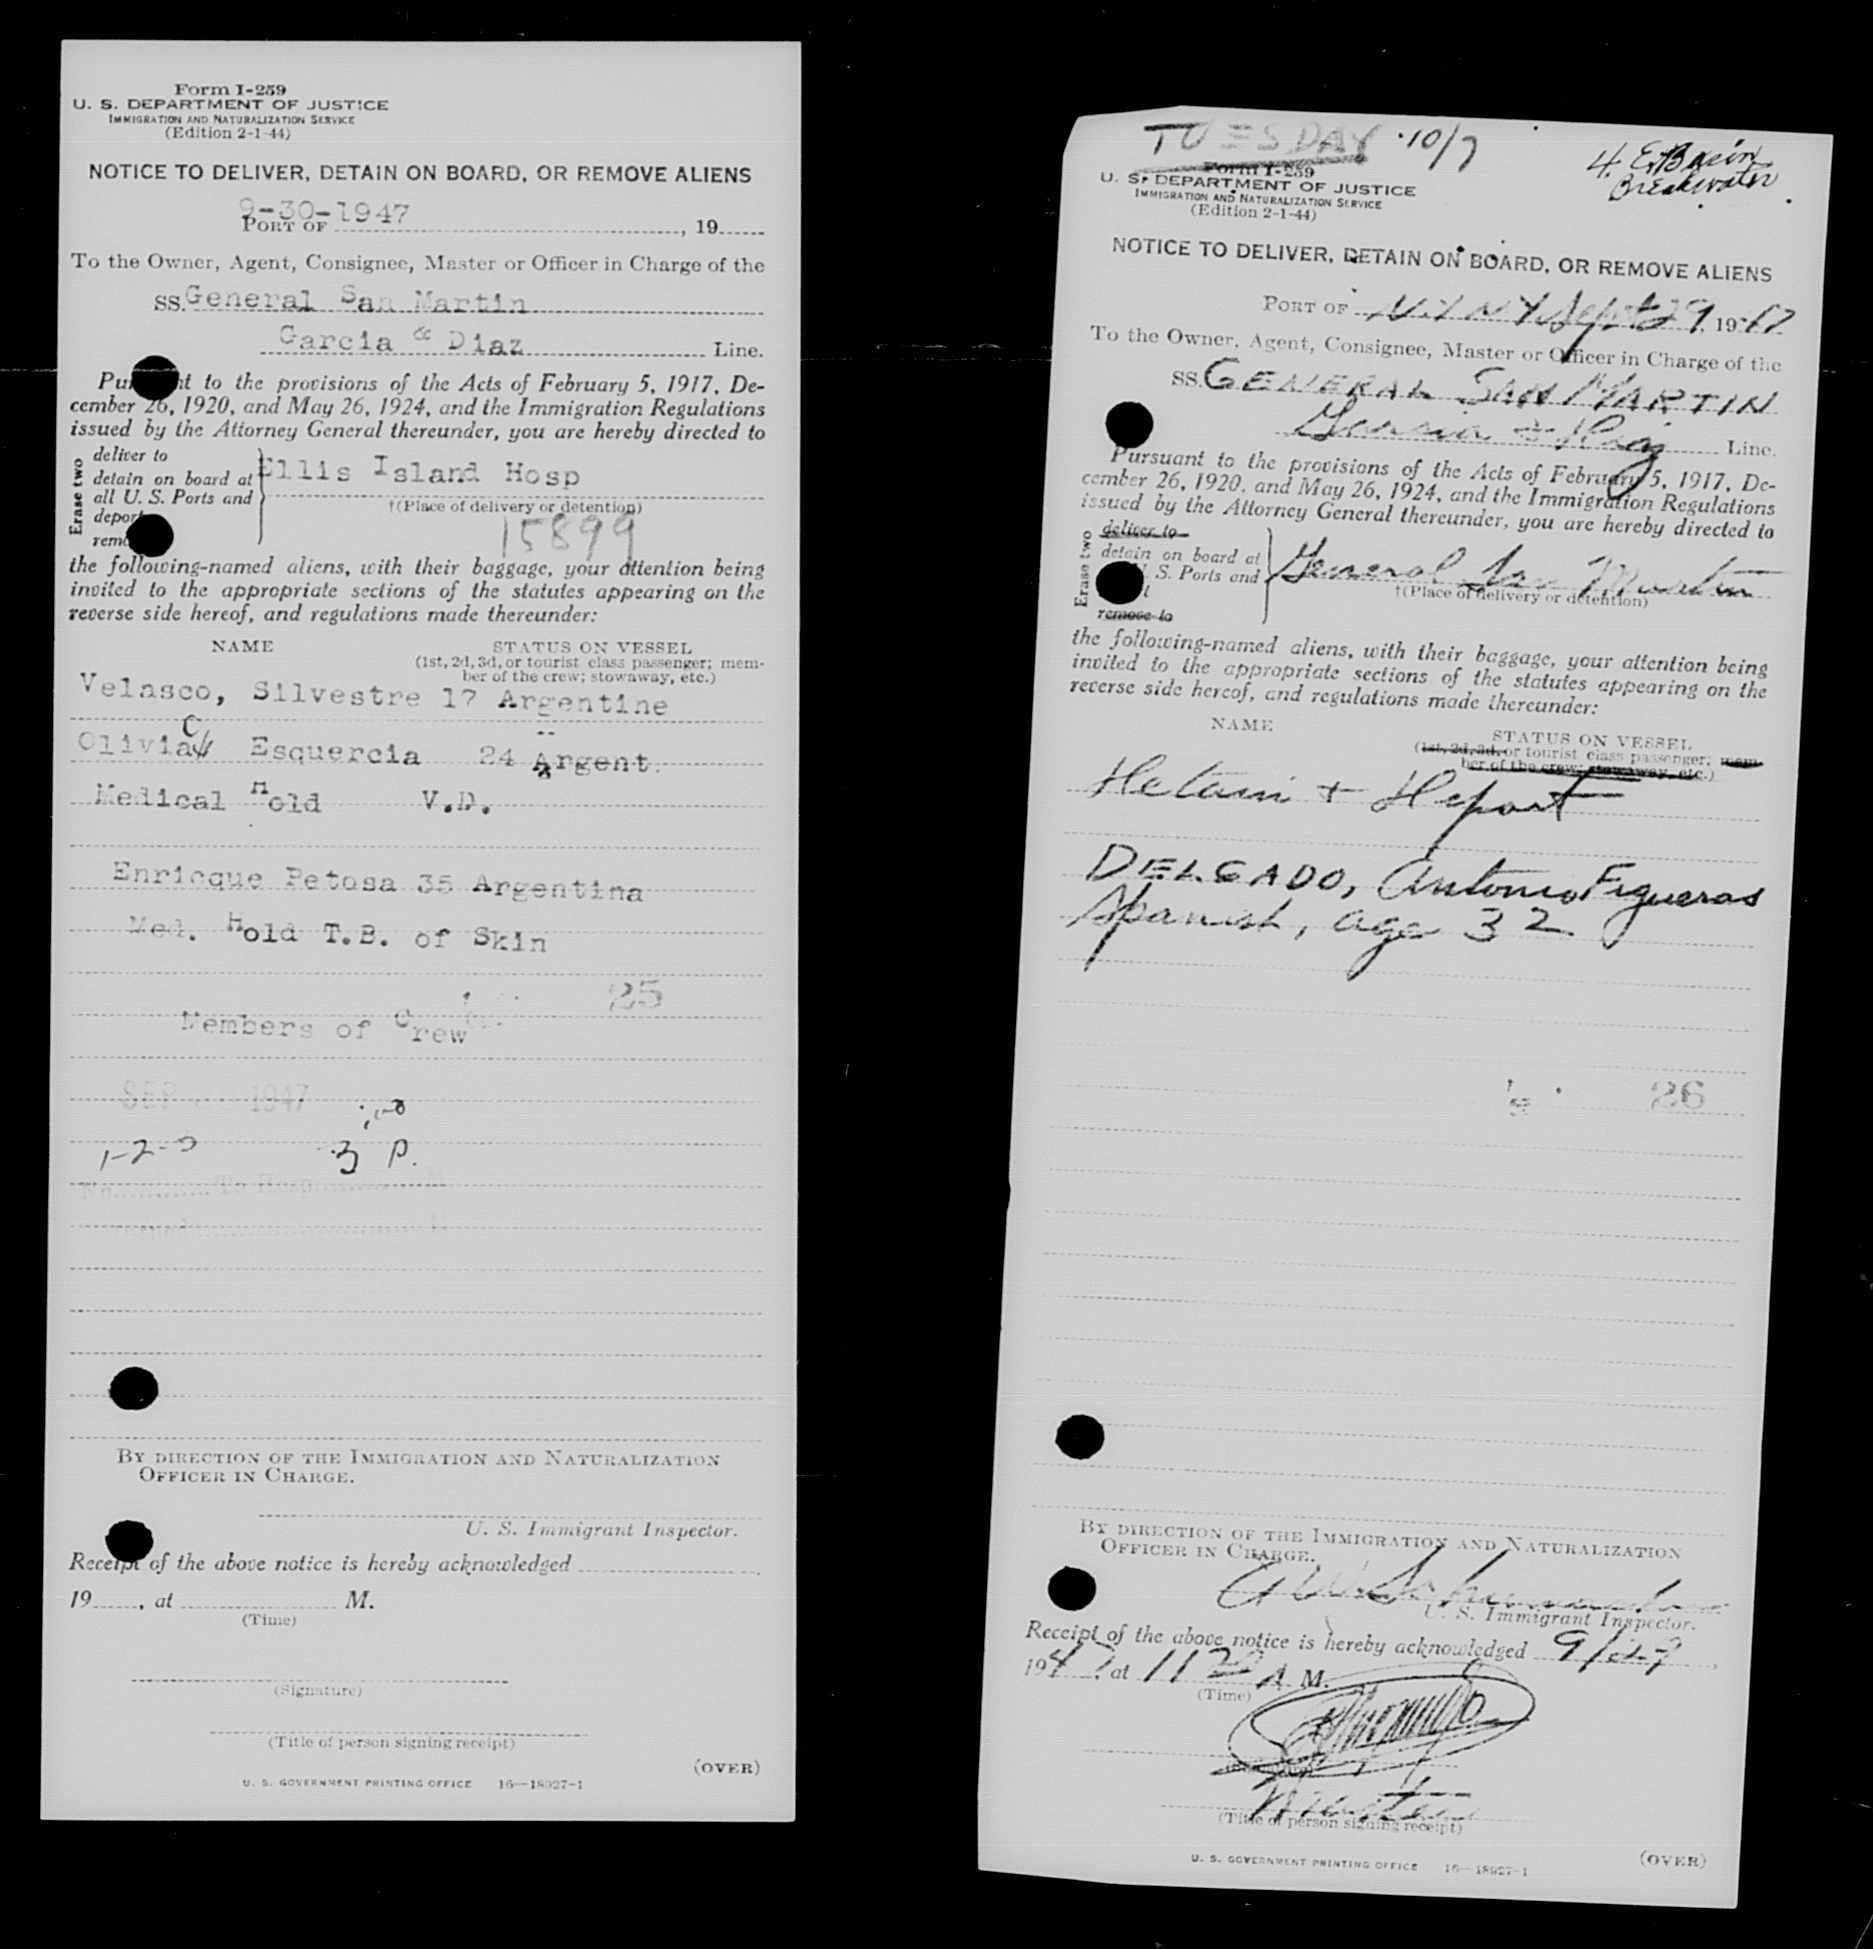 Form I-259
U. S. DEPARTMENT OF JUSTICE
IMMIGRATION AND NATURALIZATION SERVICE
(Edition 2-1-44)
NOTICE TO DELIVER, DETAIN ON BOARD, OR REMOVE ALIENS
9-30-1947
PORT OF , 19
To the Owner, Agent, Consignee, Master or Officer in Charge of the
SS. General San Martin
Garcia & Diaz Line.
Pu t to the provisions of the Acts of February 5, 1917, De-
cember 26, 1920, and May 26, 1924, and the Immigration Regulations
issued by the Attorney General thereunder, you are hereby directed to
Erase two
deliver to
detain on board at
all U. S. Ports and
depor
remo
Ellis Island Hosp
†(Place of delivery or detention)
15899
the following-named aliens, with their baggage, your attention being
invited to the appropriate sections of the statutes appearing on the
reverse side hereof, and regulations made thereunder:
NAME STATUS ON VESSEL
(1st, 2d, 3d, or tourist class passenger; mem-
ber of the crew; stowaway, etc.)
Velasco, Silvestre 17 Argentine
Olivia Esquercia 24 Argent.
Medical Hold V.D.
Enricque Petosa 35 Argentina
Med. Hold T.B. of Skin
25
Members of Crew
SEP 1947
1-2-0 3 P.
To Hosp
BY DIRECTION OF THE IMMIGRATION AND NATURALIZATION
OFFICER IN CHARGE.
U. S. Immigrant Inspector.
Receipt of the above notice is hereby acknowledged
19 , at M.
(Time)
(Signature)
(Title of person signing receipt)
(OVER)
U. S. GOVERNMENT PRINTING OFFICE 16—18027-1
TUESDAY 10/7
4. E. Basin
Breakwater
Form I-259
U. S. DEPARTMENT OF JUSTICE
IMMIGRATION AND NATURALIZATION SERVICE
(Edition 2-1-44)
NOTICE TO DELIVER, DETAIN ON BOARD, OR REMOVE ALIENS
PORT OF N.Y N.Y. Sept 29, 1947
To the Owner, Agent, Consignee, Master or Officer in Charge of the
SS. GENERAL SAN MARTIN
Garcia & Diaz Line.
Pursuant to the provisions of the Acts of February 5, 1917, De-
cember 26, 1920, and May 26, 1924, and the Immigration Regulations
issued by the Attorney General thereunder, you are hereby directed to
Erase two
deliver to
detain on board at
S. Ports and
t
remove to
General San Martin
†(Place of delivery or detention)
the following-named aliens, with their baggage, your attention being
invited to the appropriate sections of the statutes appearing on the
reverse side hereof, and regulations made thereunder:
NAME STATUS ON VESSEL
(1st, 2d, 3d, or tourist class passenger; mem-
ber of the crew; stowaway, etc.)
Detain + Deport
DELGADO, Antonio Figueras
Spanish, age 32
26
BY DIRECTION OF THE IMMIGRATION AND NATURALIZATION
OFFICER IN CHARGE.
U. S. Immigrant Inspector.
Receipt of the above notice is hereby acknowledged 9/29
1947, at 11 20 A M.
(Time)
(Title of person signing receipt)
(OVER)
U. S. GOVERNMENT PRINTING OFFICE 16—18027-1